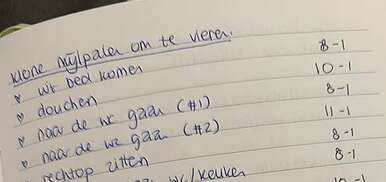 kleine mijlpalen om te vieren.
♥ uit bed komen 8-1
♥ douchen 10-1
♥ naar de wc gaan (#1) 8-1
♥ naar de wc gaan (#2) 11-1
♥ rechtop zitten 8-1
wc/keuken 8-1
10-1